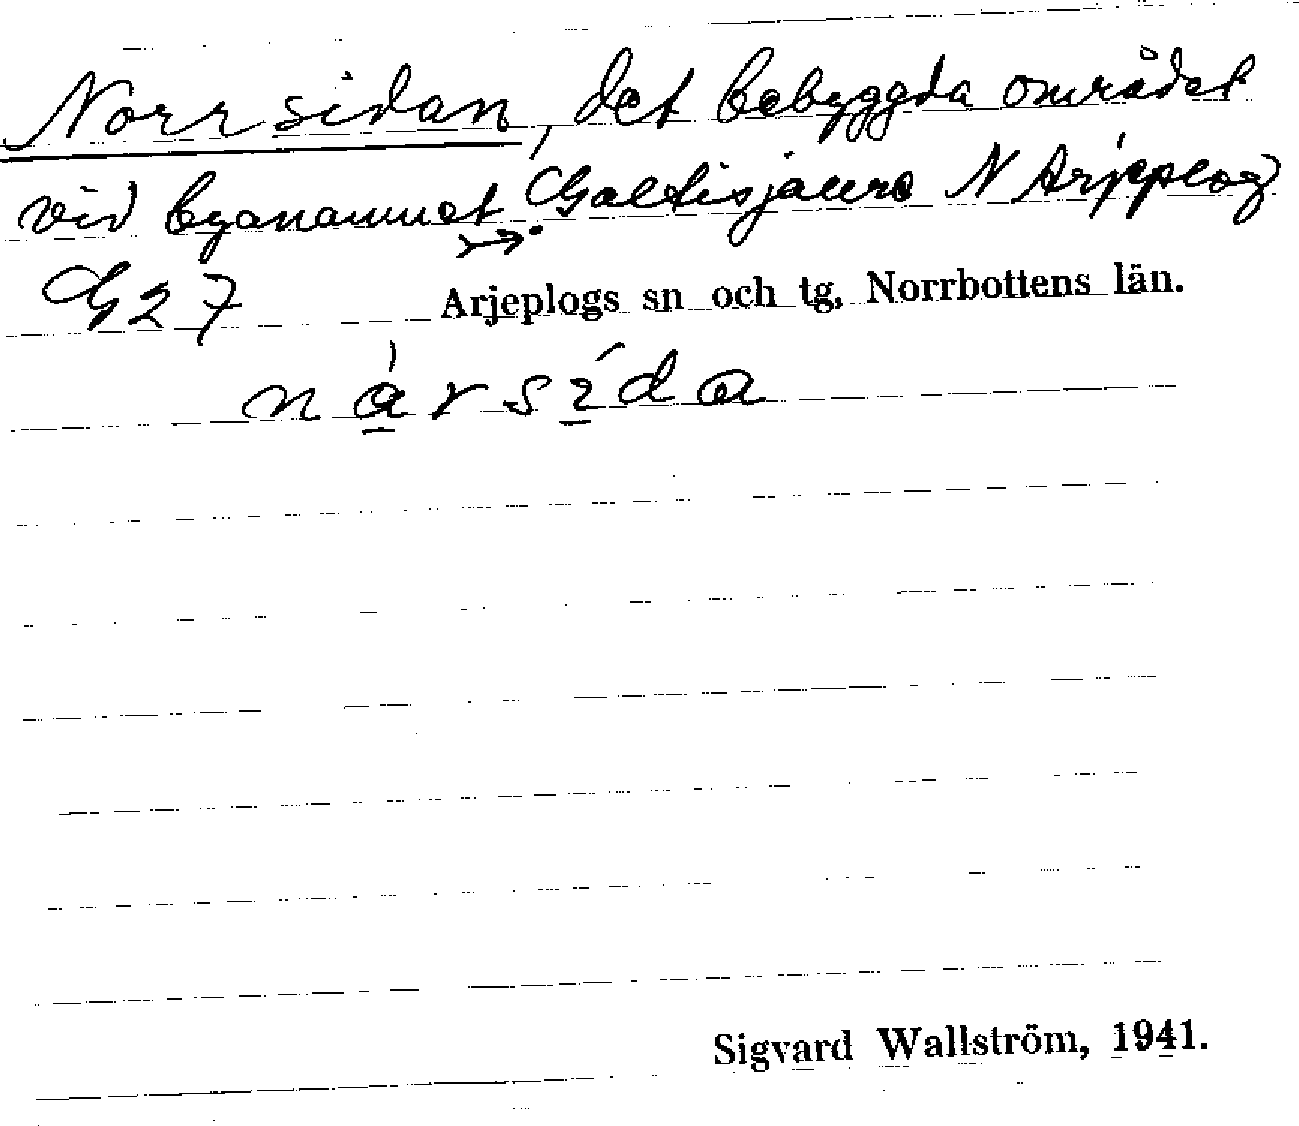 Norrsidan, det bebyggda området
vid byanamnet Galtisjaure N Arjeplog
G27 Arjeplogs sn och tg, Norrbottens län.
Sigvard Wallström, 1941.